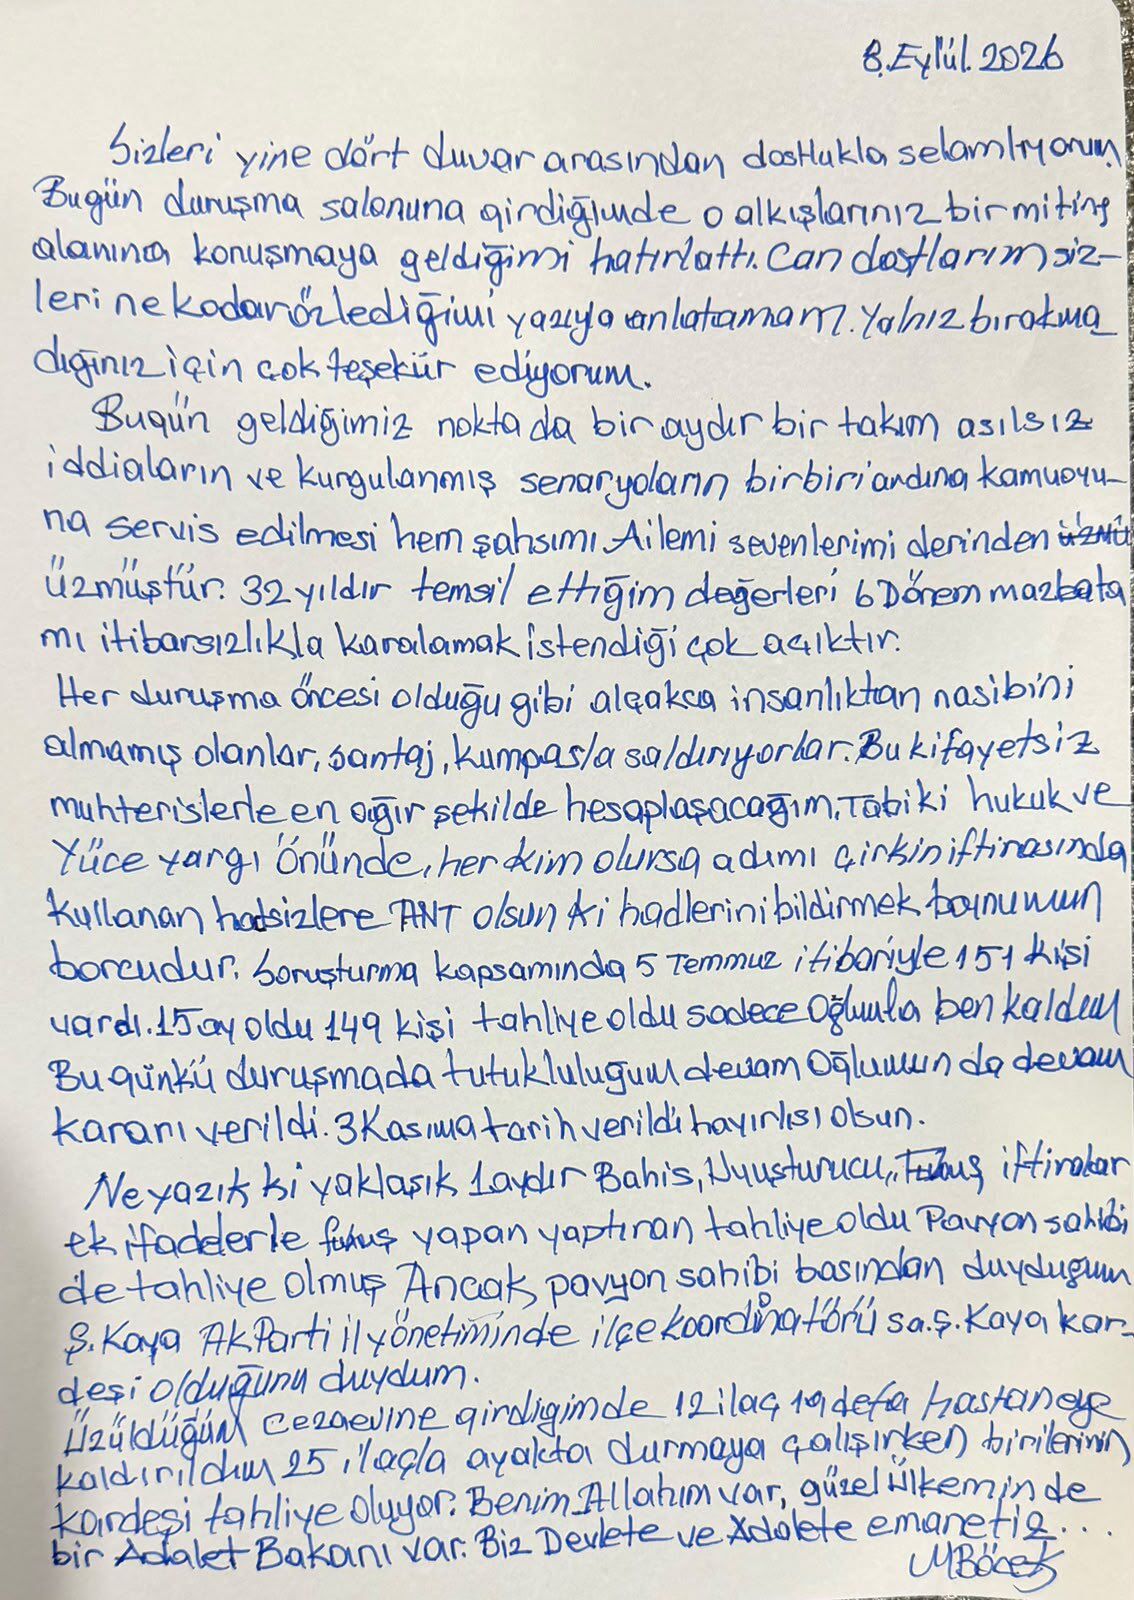 8.Eylül.2026
Sizleri yine dört duvar arasından dostlukla selamlıyorum
Bugün duruşma salonuna girdiğimde o alkışlarınız bir miting
alanına konuşmaya geldiğimi hatırlattı. Can dostlarım siz-
leri ne kadar özlediğimi yazıyla anlatamam. Yalnız bırakma_
dığınız için çok teşekür ediyorum.
Bugün geldiğimiz noktada bir aydır bir takım asılsız
iddiaların ve kurgulanmış senaryoların birbiri ardına kamuoyu-
na servis edilmesi hem şahsımı, Ailemi sevenlerimi derinden üzmü
üzmüştür. 32 yıldır temsil ettiğim değerleri 6 Dönem mazbata
mı itibarsızlıkla karalamak istendiği çok açıktır.
Her duruşma öncesi olduğu gibi alçakca insanlıktan nasibini
almamış olanlar, şantaj, kumpasla saldırıyorlar. Bu kifayetsiz
muhterislerle en ağır şekilde hesaplaşacağım, Tabiki hukuk ve
Yüce yargı önünde, her kim olursa adımı çirkin iftirasında
kullanan hadsizlere ANT olsun ki hadlerini bildirmek boynumun
borcudur. Soruşturma kapsamında 5 Temmuz itibariyle 151 kişi
vardı. 15 ay oldu 149 kişi tahliye oldu sadece Oğlumla ben kaldım
Bu günkü duruşmada tutukluluğum devam Oğlumun da devam
kararı verildi. 3 Kasıma tarih verildi hayırlısı olsun.
Ne yazık ki yaklaşık 1 aydır Bahis, Uyuşturucu, Fuhuş iftiralar
ek ifadelerle fuhuş yapan yaptıran tahliye oldu Pavyon sahibi
de tahliye olmuş Ancak pavyon sahibi basından duyduğum
Ş. Kaya Ak Parti il yönetiminde ilçe koordinatörü sa. ş. Kaya kar-
deşi olduğunu duydum.
Üzüldüğüm cezaevine girdigimde 12 ilaç 19 defa hastaneye
kaldırıldım 25 ilaçla ayakta durmaya çalışırken birilerinin
kardeşi tahliye oluyor. Benim Allahım var, güzel Ülkeminde
bir Adalet Bakanı var. Biz Devlete ve Adalete emanetiz...
MBöcek